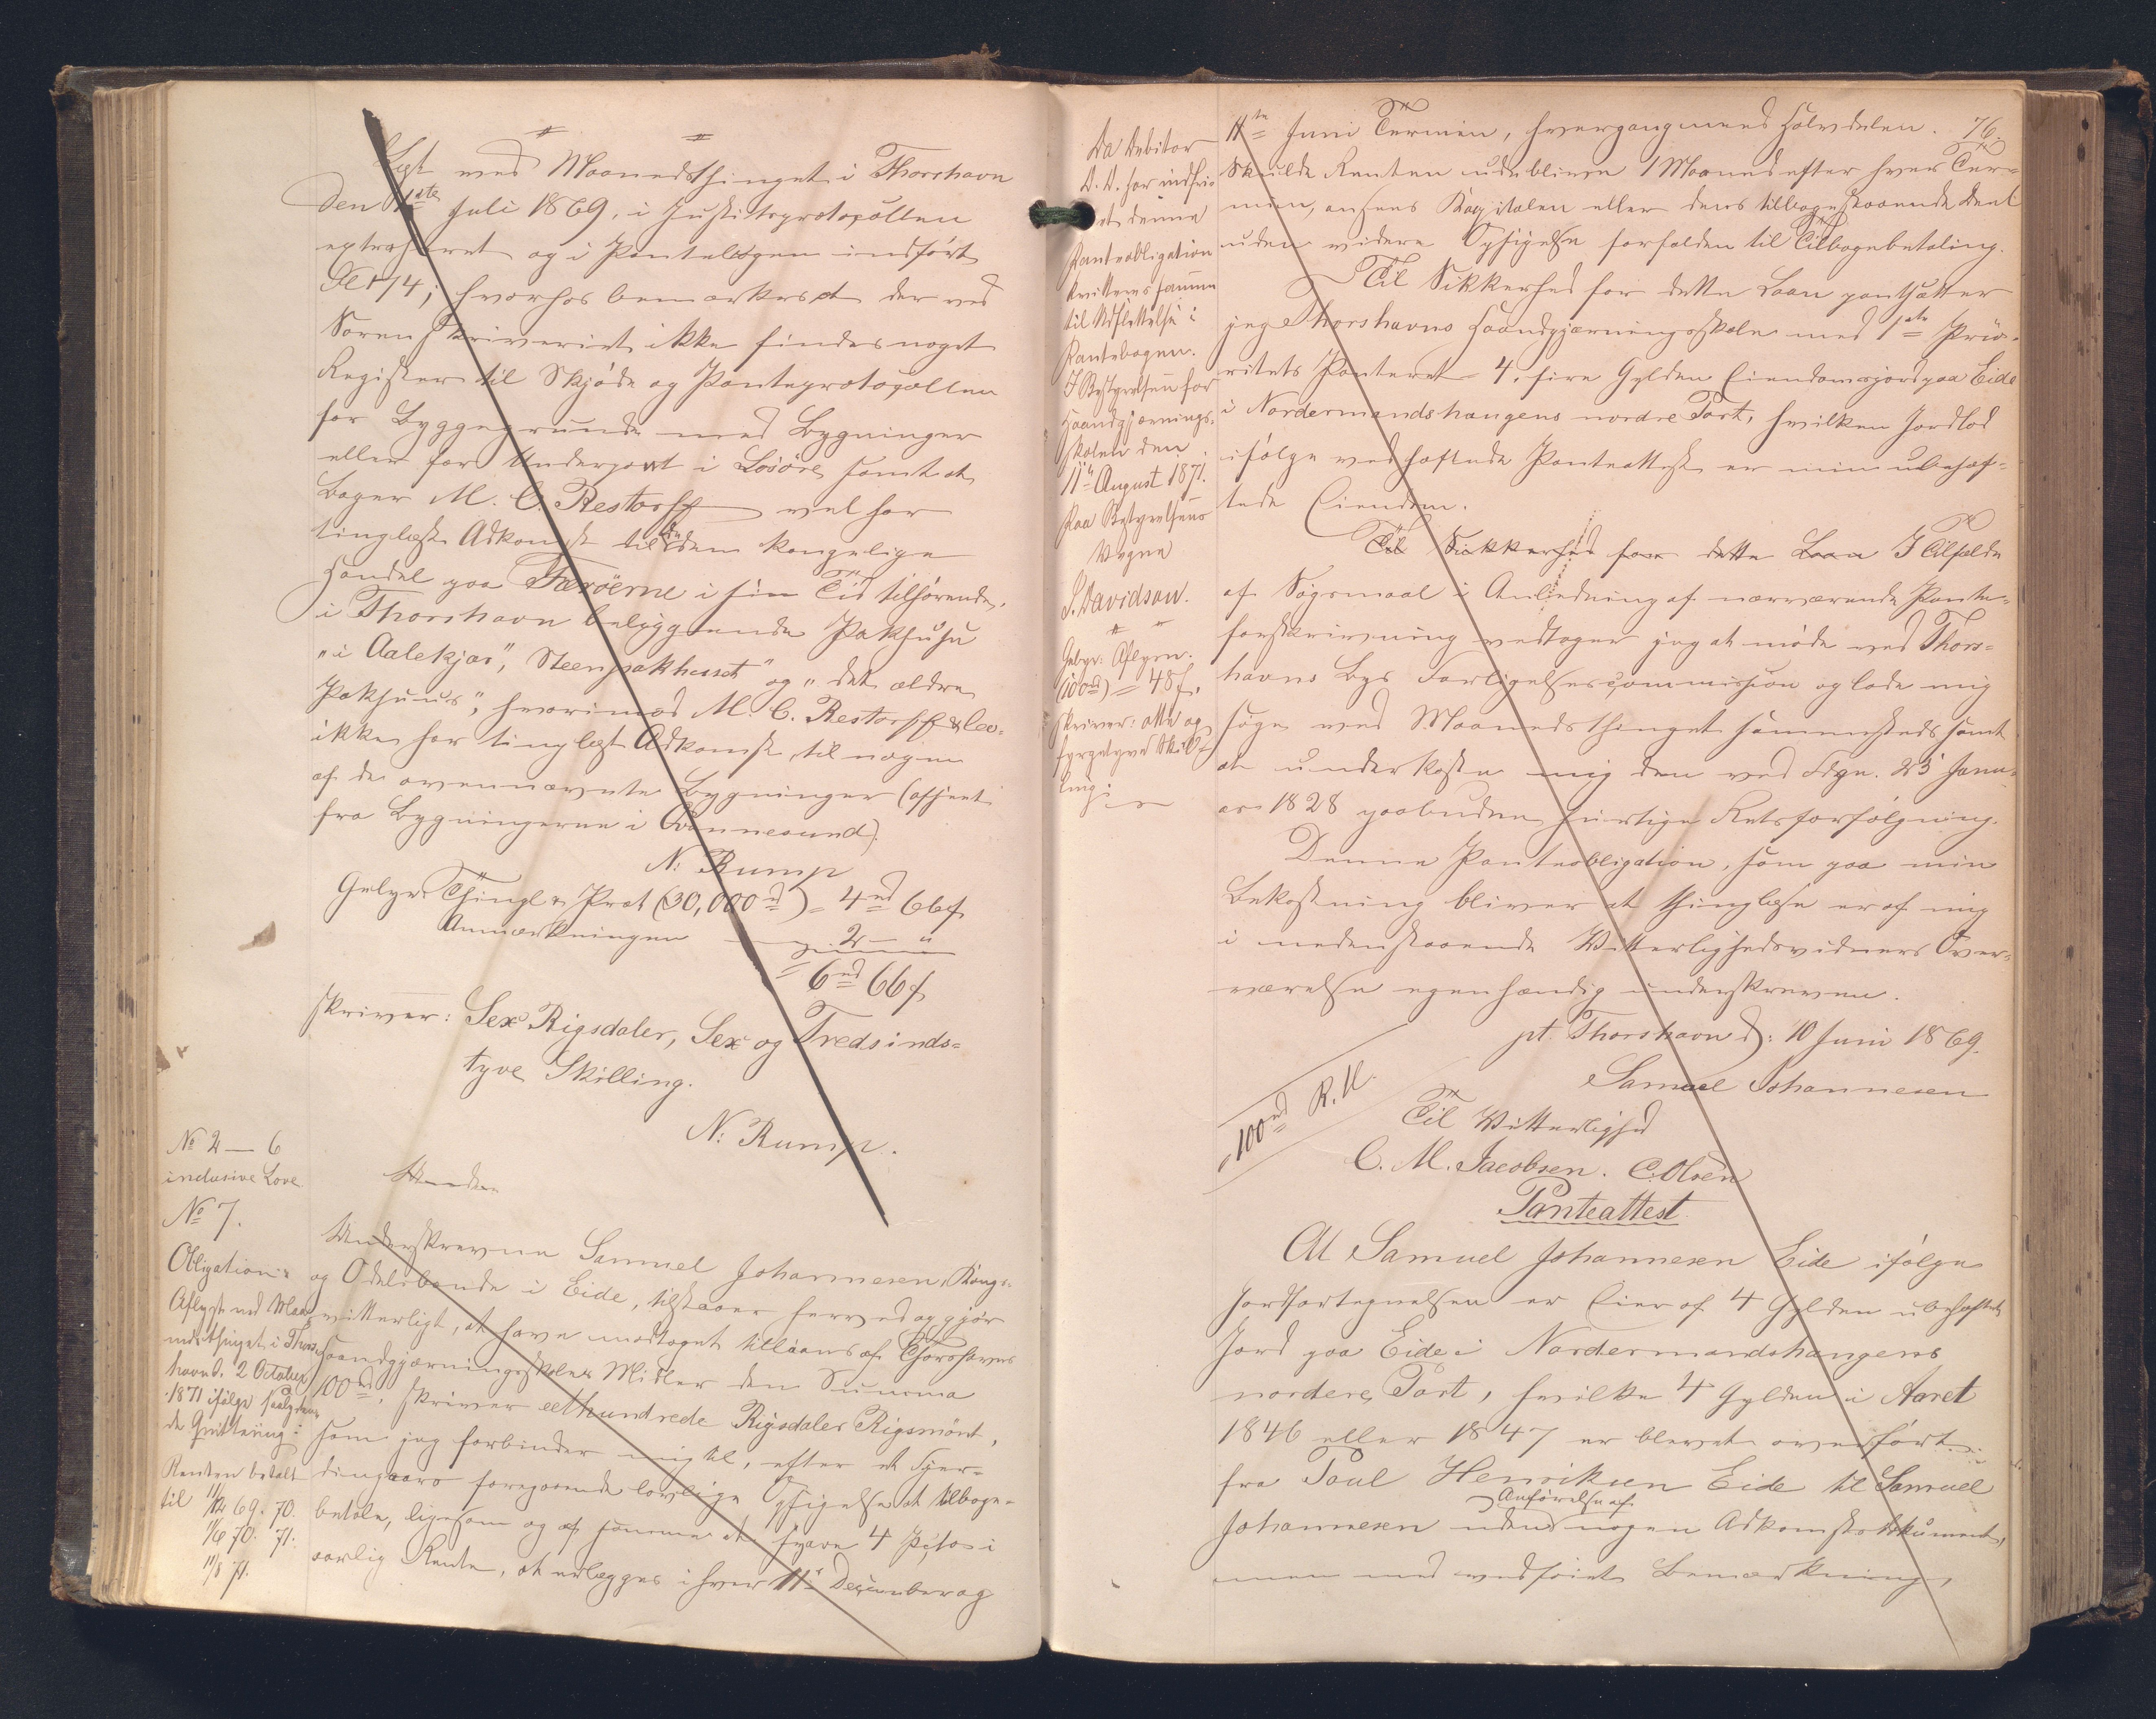 Læst ved Maanedsthinget i Thorshavn
den 1ste Juli 1869, i Justitsprotocollen
extraheret og i Pantebogen indført
Fol 74; hvorhos bemærkes at der ved
Sorenskriveriet ikke findes noget
Register til Skjøde og Panteprotocollen
for Byggegrunde med Bygninger
eller for Underpant i Løsøre samt at
Bager M. C. Restorff vel har
tinglæst Adkomst til de den kongelige
Handel paa Færöerne i sin Tid tilhørende,
i Thorshavn beliggende Pakhuse
"i Aalekjær", Steenpakhuset" og "det ældre
Pakhuus", hvorimod M. C. Restorff & Co.
ikke har tinglæst Adkomst til nogen
af de ovennævnte Bygninger (afseet
fra Bygningerne i Qvannesund).
N: Rump
Gebyr: Thingl & Prot (30,000 rd) = 4 rd 66 f
Anmærkningen 2 - "
= 6 rd 66 f
skriver: Sex Rigsdaler, Sex og Tredsinds=
tyve Skilling.
N: Rump.
No 2 — 6
inclusive Love.
No 7.
Obligation:
Aflyst ved Maa=
nedsthinget i Thors=
havn d. 2 October
1871 ifølge paalydende
Quittering:
Renten betalt
til 11/12 69. 70.
11/6 70. 71.
11/8 71.
Underskrevne Samuel Johannesen, Kongs=
og Odelsbonde i Eide, tilstaaer herved og gjør
vitterligt, at have modtaget tillaans af Thorshavns
Haandgjerningsskoles Midler den Summa
100 rd, skriver eethundrede Rigsdaler Rigsmønt,
som jeg forbinder mig til, efter et Fjer=
dingaars foregaaende lovlige Opsigelse at tilbage=
betale, ligesom og af samme at svare 4 pCto i
aarlig Rente, at erlægges i hver 11te December og
76.
11te Juni Termin, hvergang med Halvdelen.
Skulde Renten udeblive 1 Maaned efter hver Ter=
min, ansees Kapitalen eller dens tilbagestaaende Deel
uden videre Opsigelse forfalden til Tilbagebetaling.
Til Sikkerhed for dette Laan pantsætter
jeg Thorshavns Haandgjerningsskole med 1ste Prio=
ritets Panteret 4, fire Gylden Eiendomsjord paa Eide
i Nordermandshaugens nordre Part, hvilken Jordlod
ifølge vedhæftede Panteattest er min ubehæf=
tede Eiendom.
Til Sikkerhed for dette Laan I Tilfælde
af Søgsmaal i Anledning af nærværende Pante=
forskrivning vedtager jeg at møde ved Thors=
havns Byes Forligelsescommission og lade mig
søge ved Maanedsthinget sammesteds samt
at underkaste mig den ved Fdgn. 25 Janu=
ar 1828 paabudne hurtige Retsforfølgning.
Denne Panteobligation, som paa min
Bekostning bliver at thinglæse er af mig
i nedenstaaende Vitterlighedsvidners Over=
værelse egenhændig underskreven.
pt. Thorshavn d: 10 Juni 1869.
Samuel Johannesen
100 rd R.M.
Til Vitterlighed
C. M. Jacobsen. C. Olsen
Panteattest
At Samuel Johannesen Eide ifølge
Jordfortegnelsen er Eier af 4 Gylden ubehæftet
Jord paa Eide i Nordermandshaugens
nordere Part, hvilke 4 Gylden i Aaret
1846 eller 1847 er blevet overført
fra Poul Henriksen Eide til Samuel
Johannesen uden Anførelse af nogen Adkomstdokument,
men med vedføiet Bemærkning,
Da Debitor
D. D. har indfri=
et denne
Panteobligation
kvitteres samme
til Udslettelse i
Pantebogen.
I Bestyrelsen for
Haandgjernings=
skolen den
11te August 1871.
Paa Bestyrelsens
Vegne
J. Davidsen.
Gebyr: Aflysn:
(100 rd) = 48 f,
skriver: otte og
fyrgetyve Skil=
ling.